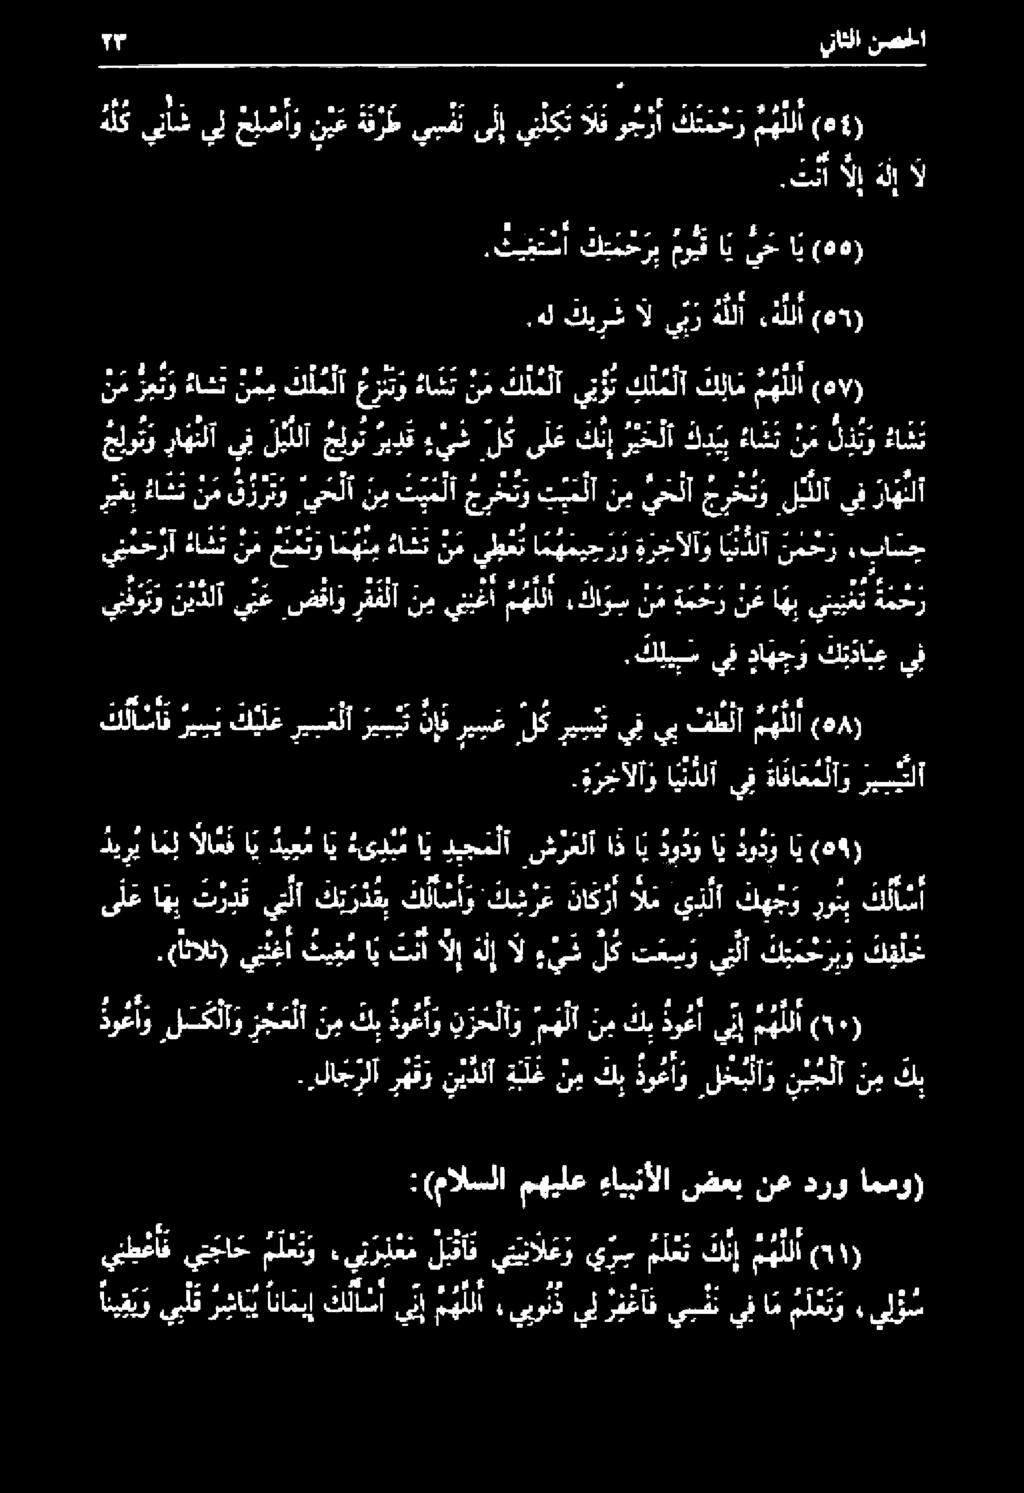 الحصن الثاني ٢٣
(٥٤) أَللَّهُمَّ رَحْمَتَكَ أَرْجُو فَلَا تَكِلْنِي إِلَى نَفْسِي طَرْفَةَ عَيْنٍ وَأَصْلِحْ لِي شَأْنِي كُلَّهُ
لَا إِلَهَ إِلاَّ أَنْتَ.
(٥٥) يَا حَيُّ يَا قَيُّومُ بِرَحْمَتِكَ أَسْتَغِيثُ.
(٥٦) أَللَّهُ، أَللَّهُ رَبِّي لاَ شَرِيكَ له.
(٥٧) أَللَّهُمَّ مَالِكَ ٱلْمُلْكِ تُؤْتِي ٱلْمُلْكَ مَنْ تَشَاءُ وَتَنْزِعُ ٱلْمُلْكَ مِمَّنْ تَشَاءُ وَتُعِزُّ مَنْ
تَشَاءُ وَتُذِلُّ مَنْ تَشَاءُ بِيَدِكَ ٱلْخَيْرُ إِنَّكَ عَلَى كُلِّ شَيْءٍ قَدِيرٌ تُولِجُ ٱللَّيْلَ فِي ٱلنَّهَارِ وَتُولِجُ
ٱلنَّهَارَ فِي ٱللَّيْلِ وَتُخْرِجُ ٱلْحَيَّ مِنَ ٱلْمَيِّتِ وَتُخْرِجُ ٱلْمَيِّتَ مِنَ ٱلْحَيِّ وَتَرْزُقُ مَنْ تَشَاءُ بِغَيْرِ
حِسَابٍ، رَحْمَنَ ٱلدُّنْيَا وَٱلآخِرَةِ وَرَحِيمَهُمَا تُعْطِي مَنْ تَشَاءُ مِنْهُمَا وَتَمْنَعُ مَنْ تَشَاءُ ٱرْحَمْنِي
رَحْمَةً تُغْنِينِي بِهَا عَنْ رَحْمَةِ مَنْ سِوَاكَ، أَللَّهُمَّ أَغْنِنِي مِنَ ٱلْفَقْرِ وَاقْضِ عَنِّي ٱلدَّيْنَ وَتَوَفَّنِي
فِي عِبَادَتِكَ وَجِهَادٍ فِي سَبِيلِكَ.
(٥٨) أَللَّهُمَّ ٱلْطُفْ بِي فِي تَيْسِيرِ كُلِّ عَسِيرٍ فَإِنَّ تَيْسِيرَ ٱلْعَسِيرِ عَلَيْكَ يَسِيرٌ فَأَسْأَلُكَ
ٱلتَّيْسِيرَ وَٱلْمُعَافَاةَ فِي ٱلدُّنْيَا وَٱلآخِرَةِ.
(٥٩) يَا وَدُودُ يَا وَدُودُ يَا ذَا ٱلْعَرْشِ ٱلْمَجِيدِ يَا مُبْدِىءُ يَا مُعِيدُ يَا فَعَّالاً لِمَا يُرِيدُ
أَسْأَلُكَ بِنُورِ وَجْهِكَ ٱلَّذِي مَلأَ أَرْكَانَ عَرْشِكَ وَأَسْأَلُكَ بِقُدْرَتِكَ ٱلَّتِي قَدِرْتَ بِهَا عَلَى
خَلْقِكَ وَبِرَحْمَتِكَ ٱلَّتِي وَسِعَت كُلَّ شَيْءٍ لاَ إِلَهَ إِلاَّ أَنْتَ يَا مُغِيثُ أَغِثْنِي (ثلاثاً).
(٦٠) أَللَّهُمَّ إِنِّي أَعُوذُ بِكَ مِنَ ٱلْهَمِّ وَٱلْحَزَنِ وَأَعُوذُ بِكَ مِنَ ٱلْعَجْزِ وَٱلْكَسَلِ وَأَعُوذُ
بِكَ مِنَ ٱلْجُبْنِ وَٱلْبُخْلِ وَأَعُوذُ بِكَ مِنْ غَلَبَةِ ٱلدَّيْنِ وَقَهْرِ ٱلرِّجَالِ.
(ومما ورد عن بعض الأنبياء عليهم السلام):
(٦١) أَللَّهُمَّ إِنَّكَ تَعْلَمُ سِرِّي وَعَلاَنِيَتِي فَٱقْبَلْ مَعْذِرَتِي، وَتَعْلَمُ حَاجَتِي فَأَعْطِنِي
سُؤْلِي، وَتَعْلَمُ مَا فِي نَفْسِي فَٱغْفِرْ لِي ذُنُوبِي، أَللَّهُمَّ إِنِّي أَسْأَلُكَ إِيمَاناً يُبَاشِرُ قَلْبِي وَيَقِيناً